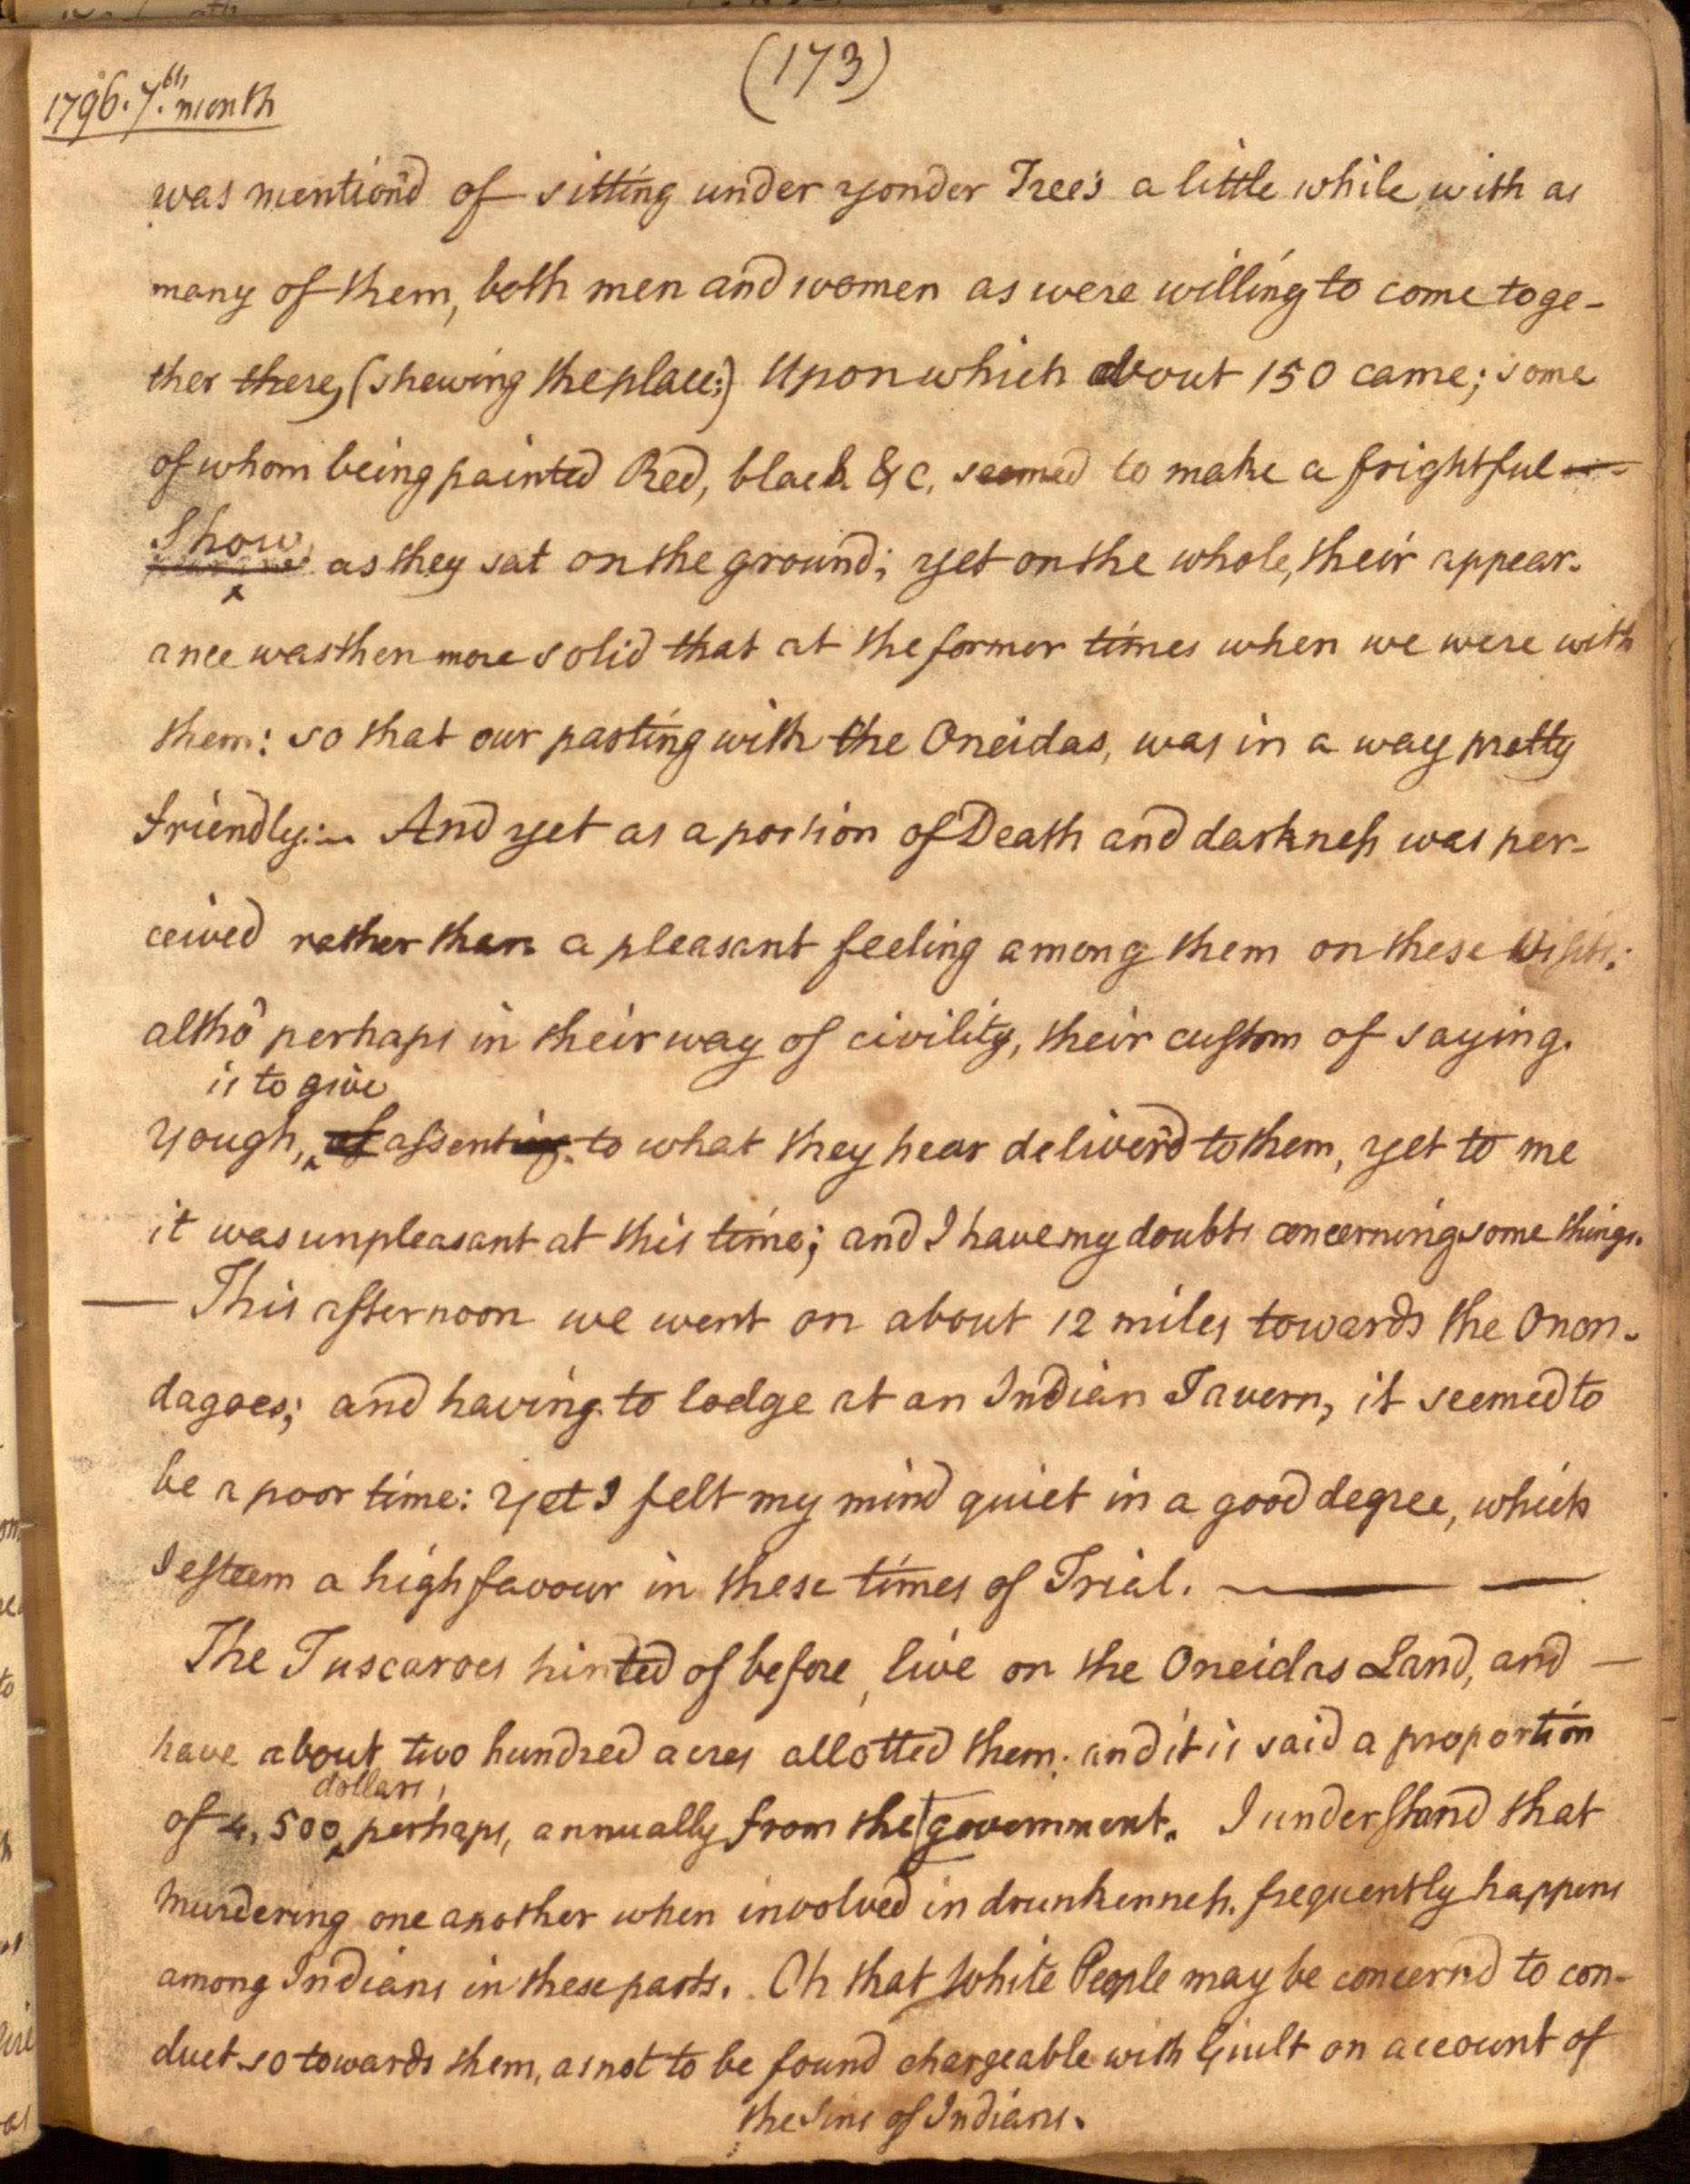 (173)
1796. 7th. month
was mention'd of sitting under yonder Tree's a little while with as
many of them, both men and women as were willing to come toge-
ther there, (shewing the place:) Upon which about 150 came; some
of whom being painted Red, black &c. seemed to make a frightful
Show
as they sat on the ground; yet on the whole, their appear-
ance was then more solid that at the former times when we were with
them: so that our parting with the Oneidas, was in a way pretty
friendly:- And yet as a portion of Death and darkness was per-
ceived rather than a pleasant feeling among them on these Visits:
altho' perhaps in their way of civility, their custom of saying
is to give
Yough, of assenting to what they hear deliver'd to them, yet to me
it was unpleasant at this time; and I have my doubts concerning some things.
— This afternoon we went on about 12 miles towards the Onon-
dagoes; and having to lodge at an Indian Tavern, it seemed to
be a poor time: Yet I felt my mind quiet in a good degree, which
I esteem a high favour in these times of Trial. — —
The Tuscaroes hinted of before, live on the Oneidas Land, and —
have about two hundred acres allotted them: and it is said a proportion
dollars,
of 4,500 perhaps, annually from the government. I understand that
murdering one another when involved in drunkenness, frequently happens
among Indians in these parts. Oh that White People may be concern'd to con-
duct so towards them, as not to be found chargeable with Guilt on account of
the Sins of Indians.